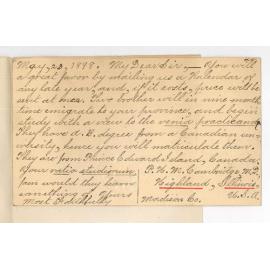 May, 23, 1898. My Dear Sir,— You will
a great favor by mailing us a Kalendar of
any late year, and, if it costs, price will be
sent at once. Two brother will in nine month
time emigrate to your province, and begin
study with a view to the venia practicandi.
They have d. B. degree from a Canadian uni-
versity, hence you will matriculate them.
They are from Prince Edward Island, Canada.
Of your ratio studiorum
fain would they learn
something. Yours
Most Faithfully
P. H. M. Cambridge M.D.,
Highland, Illinois.
Madison Co. U.S.A.